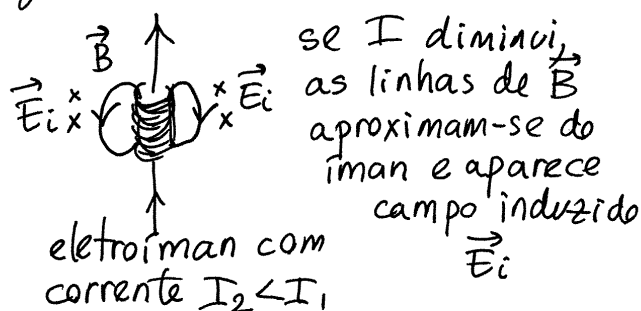 se I diminui,
as linhas de B⃗
aproximam-se do
iman e aparece
campo induzido
E⃗i
B⃗
E⃗i x x
x x E⃗i
eletroíman com
corrente I₂<I₁